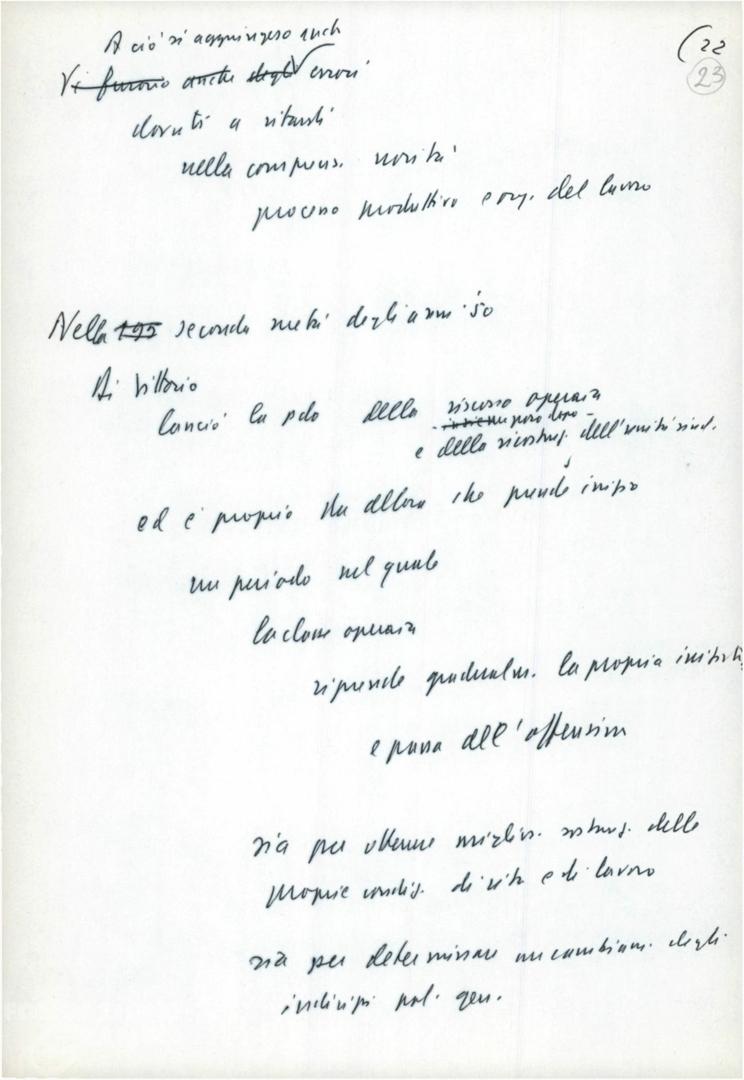 (22
23
A ciò si aggiungeso anch
Vi furono anche degli errori
dovuti a ritardi
nella comprens. novità
processo produttivo e org. del lavoro
Nella 195 seconda metà degli anni '50
Di Vittorio
lanciò la pdo della riscossa operaia
e della ricostruz. dell'unità sind.
ed è proprio da allora che prende inizio
un periodo nel quale
la classe operaia
riprende gradualm. la propria iniziativa
e passa all'offensiva
sia per ottenere miglior. sostanz. delle
proprie condiz. di vita e di lavoro
sia per determinare un cambiam. degli
indirizzi pol. gen.